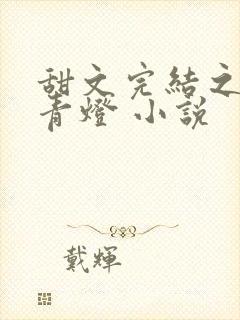 甜文完結之
青燈 小說
戴輝